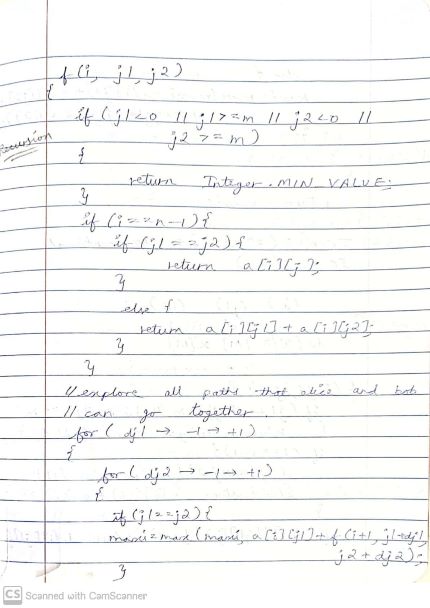 f(i, j1, j2)
{
if (j1<0 || j1>=m || j2<0 ||
j2>=m)
Recursion
{
return Integer.MIN_VALUE;
}
if (i==n-1){
if (j1==j2){
return a[i][j];
}
else {
return a[i][j1]+a[i][j2];
}
}
// explore all paths that alice and bob
// can go together.
for (dj1 → -1 → +1)
{
for (dj2 → -1 → +1)
{
if (j1==j2){
maxi=max(maxi, a[i][j1]+f(i+1, j1+dj1,
j2+dj2);
}
CS Scanned with CamScanner